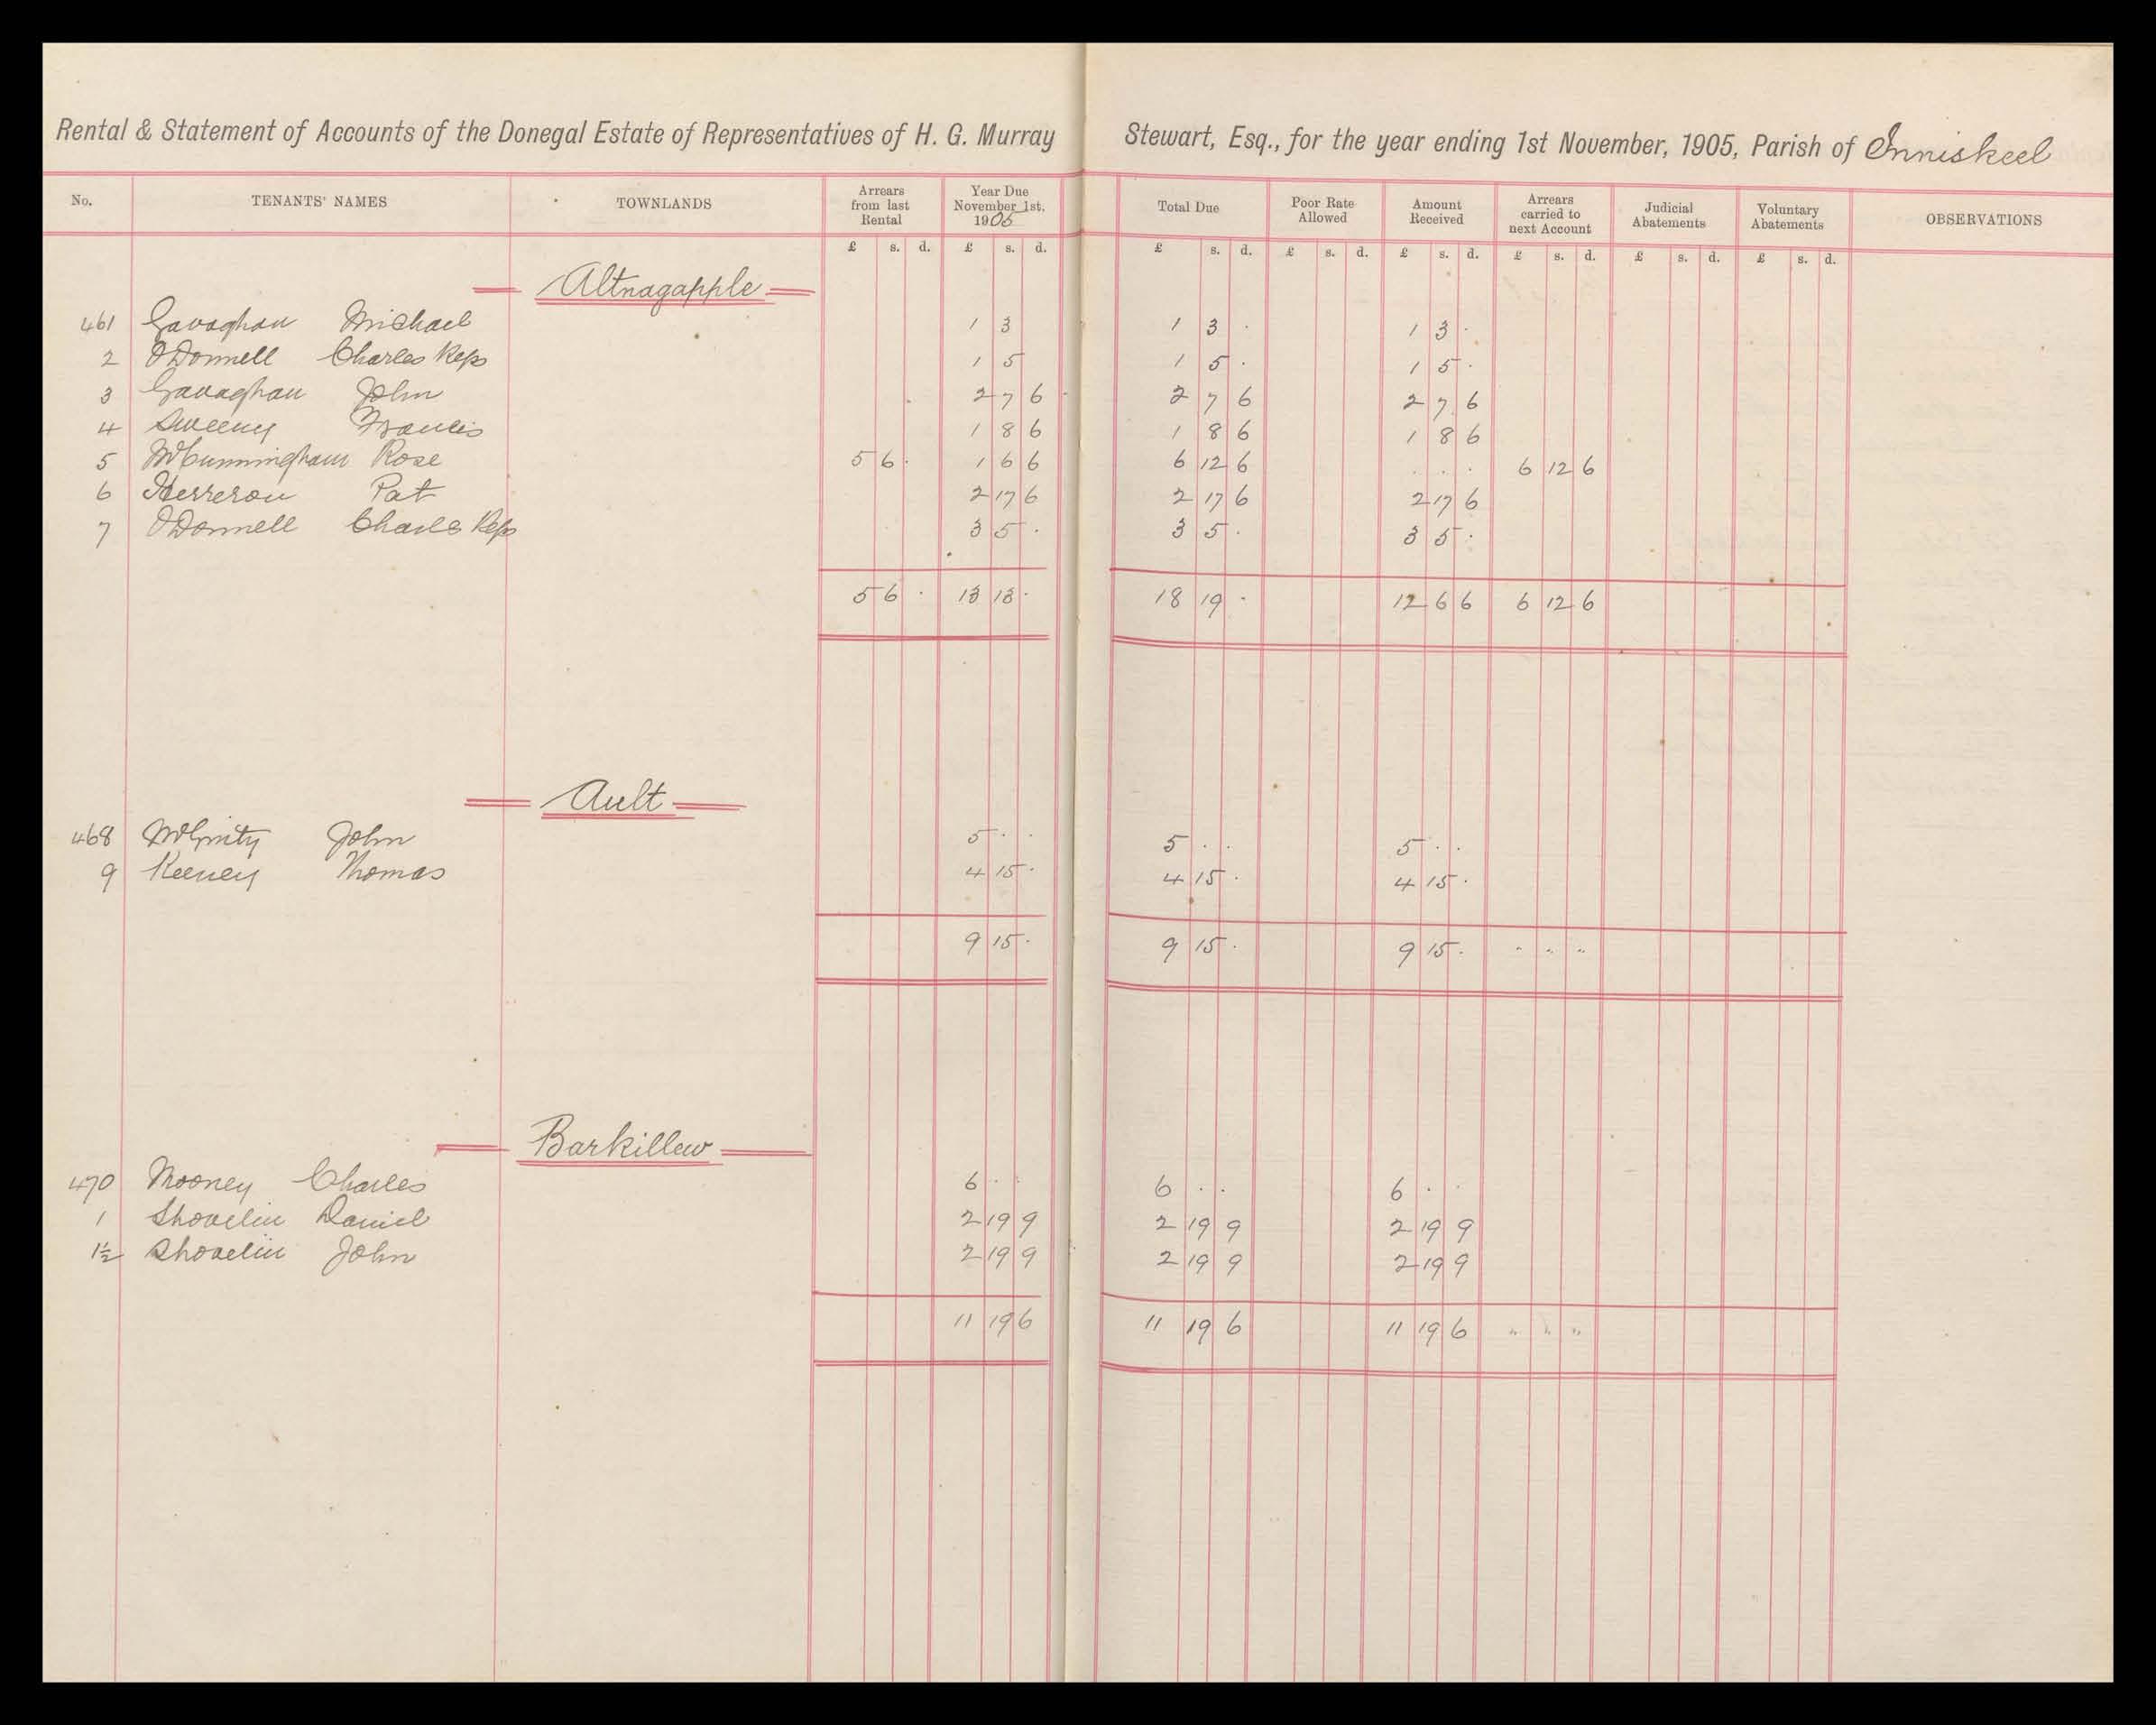 Rental & Statement of Accounts of the Donegal Estate of Representatives of H. G. Murray Stewart, Esq., for the year ending 1st November, 1905, Parish of Inniskeel
No. TENANTS' NAMES TOWNLANDS Arrears from last Rental Year Due November 1st. 1905 Total Due Poor Rate Allowed Amount Received Arrears carried to next Account Judicial Abatements Voluntary Abatements OBSERVATIONS
£ s. d. £ s. d. £ s. d. £ s. d. £ s. d. £ s. d. £ s. d. £ s. d.
Altnagapple
461 Gavaghan Michael 1 3 1 3 · 1 3 ·
2 O'Donnell Charles Reps 1 5 1 5 · 1 5 ·
3 Gavaghan John 2 7 6 2 7 6 2 7 6
4 Sweeny Francis 1 8 6 1 8 6 1 8 6
5 McCunningham Rose 5 6 · 1 6 6 6 12 6 · · · 6 12 6
6 Herreron Pat 2 17 6 2 17 6 2 17 6
7 O'Donnell Charls Reps 3 5 · 3 5 · 3 5 ·
5 6 · 13 13 · 18 19 · 12 6 6 6 12 6
Ault
468 McGinty John 5 · · 5 · · 5 · ·
9 Keeney Thomas 4 15 · 4 15 · 4 15 ·
9 15 · 9 15 · 9 15 · " " "
Barkillew
470 Mooney Charles 6 · · 6 · · 6 · ·
1 Shovelin Daniel 2 19 9 2 19 9 2 19 9
1½ Shovelin John 2 19 9 2 19 9 2 19 9
11 19 6 11 19 6 11 19 6 " " "